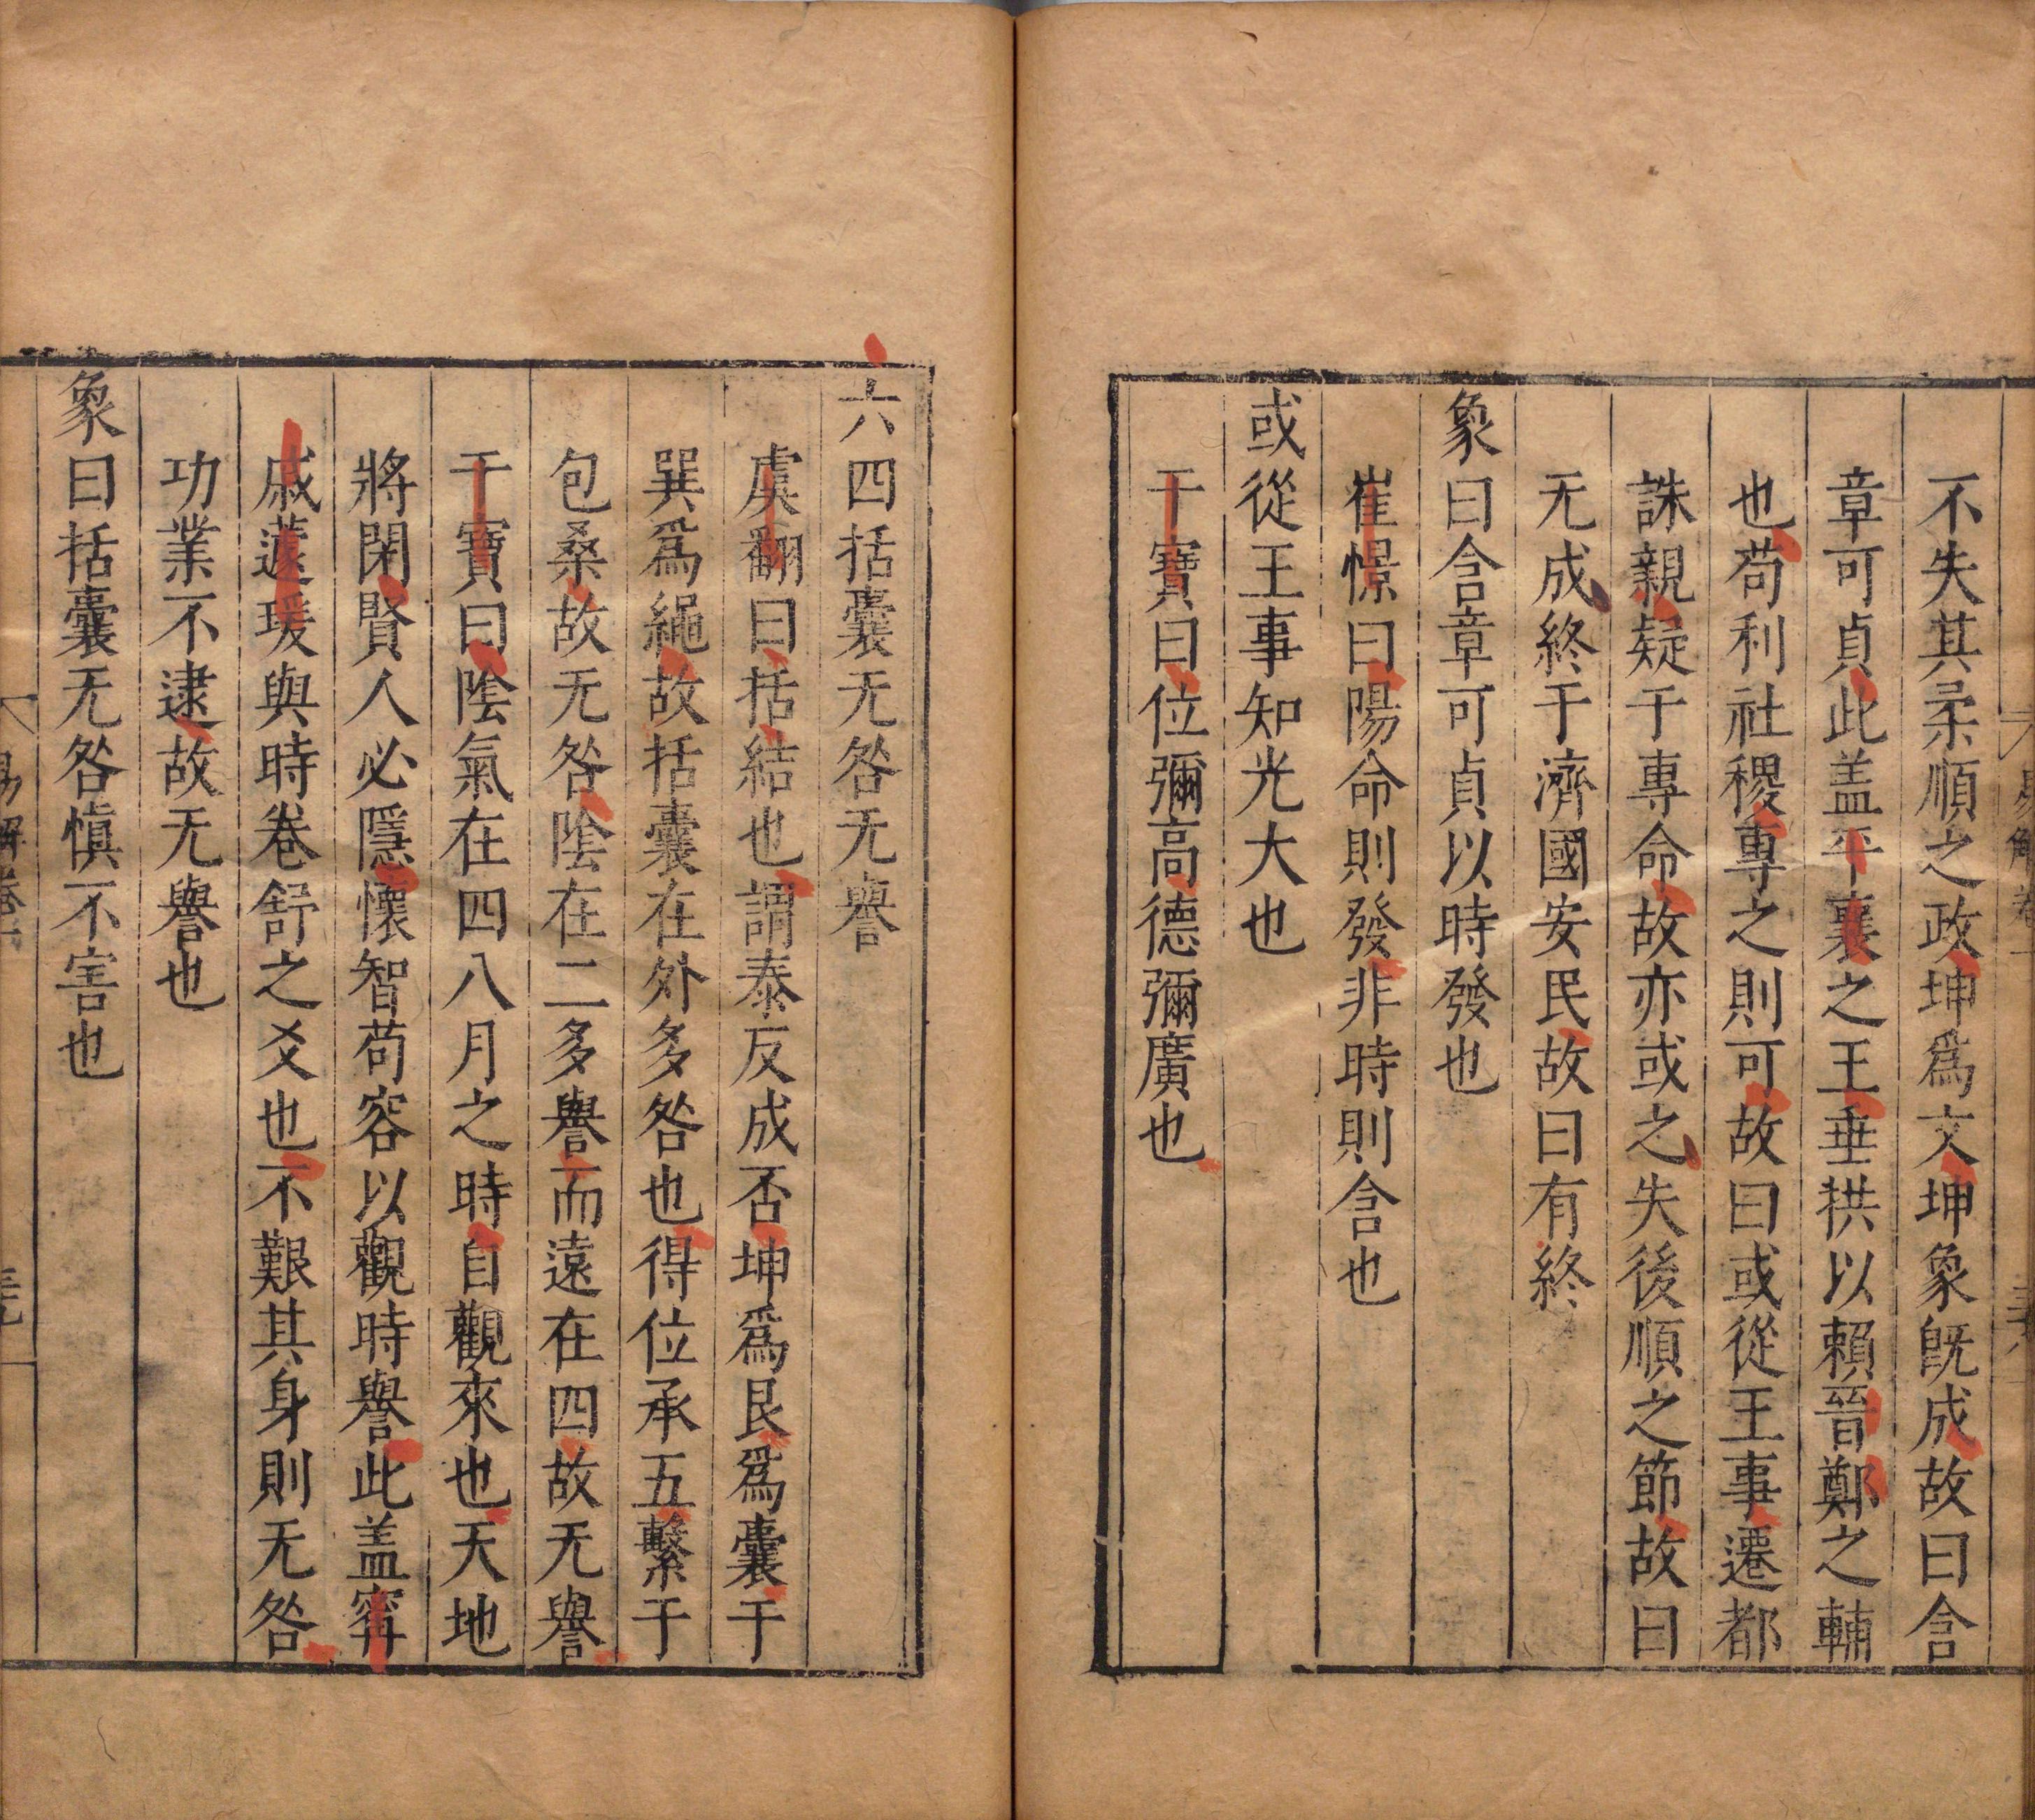 不失其柔順之政坤爲文坤象旣成故曰含
章可貞此盖平襄之王垂拱以賴晉鄭之輔
也苟利社稷專之則可故曰或從王事遷都
誅親疑于專命故亦或之失後順之節故曰
无成終于濟國安民故曰有終
象曰含章可貞以時發也
崔憬曰陽命則發非時則含也
或從王事知光大也
干寶曰位彌高德彌廣也
六四括囊无咎无譽
虞翻曰括結也謂泰反成否坤爲艮爲囊于
巽爲繩故括囊在外多咎也得位承五繫于
包桑故无咎陰在二多譽而遠在四故无譽
干寶曰陰氣在四八月之時自觀來也天地
將閉賢人必隱懷智苟容以觀時譽此盖甯
戚蘧瑗與時卷舒之爻也不艱其身則无咎
功業不逮故无譽也
象曰括囊无咎愼不害也